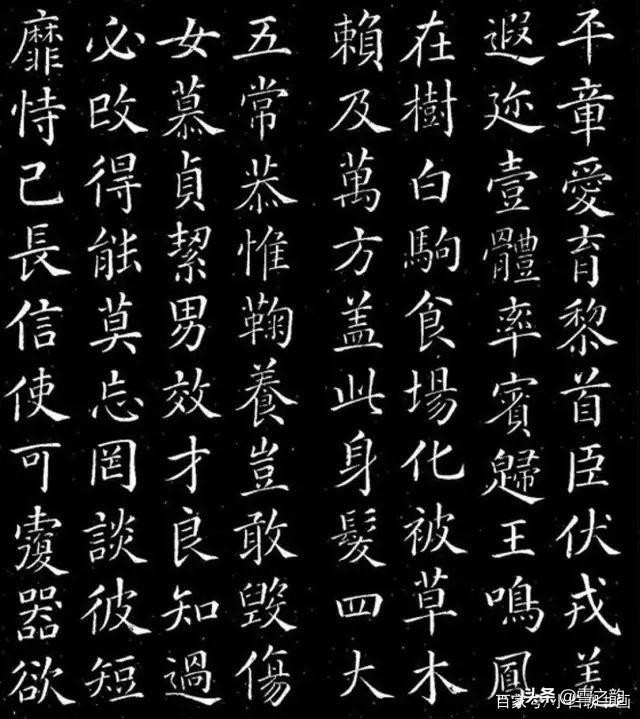 平章愛育黎首臣伏戎羌
遐迩壹體率賓歸王鳴鳳
在樹白駒食場化被草木
賴及萬方盖此身髮四大
五常恭惟鞠養豈敢毀傷
女慕貞絜男效才良知過
必改得能莫忘罔談彼短
靡恃己長信使可覆器欲
头条
百家号